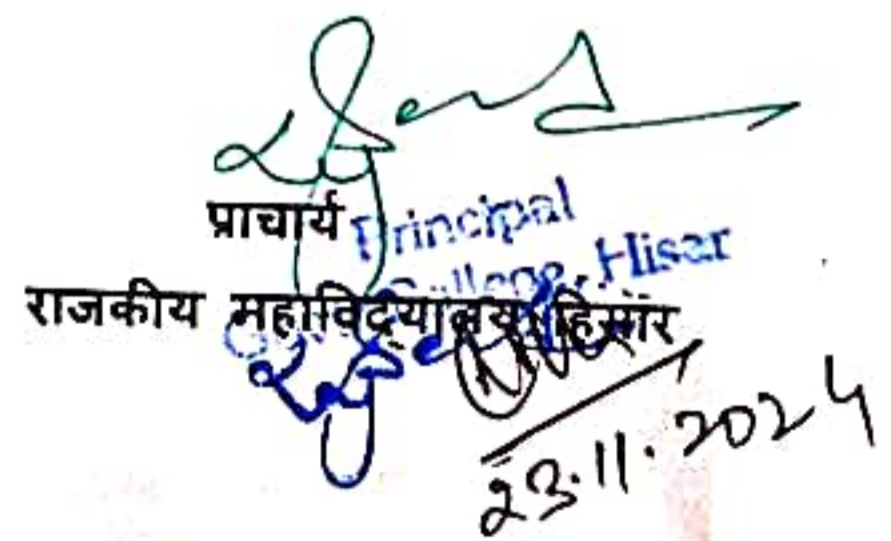 प्राचार्य
Principal
College, Hisar
राजकीय महाविद्यालय, हिसार
23.11.2024